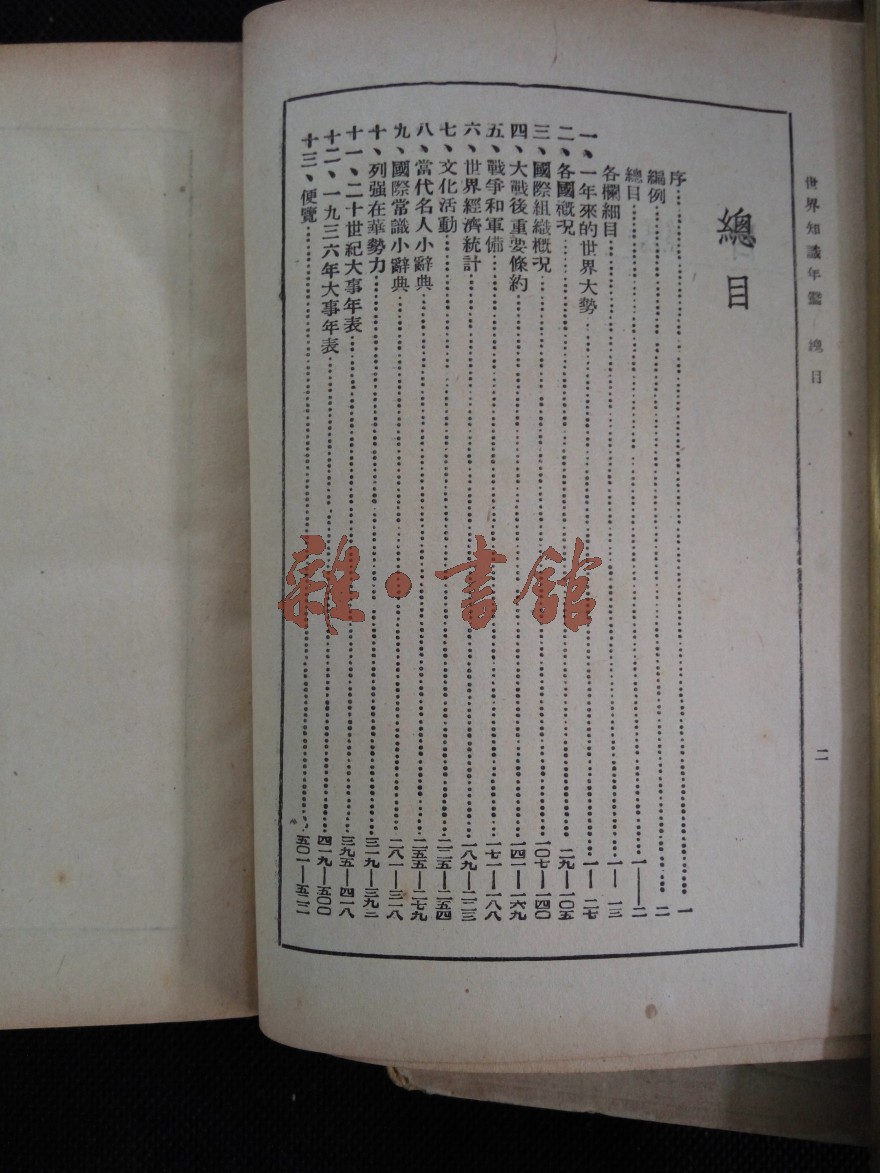 世界知識年鑑 總目
二
總目
序……一
編例……二
總目……一——二
各欄細目……一—一三
一、一年來的世界大勢……一—二七
二、各國概況……二九—一〇五
三、國際組織概況……一〇七—一四〇
四、大戰後重要條約……一四一—一六九
五、戰爭和軍備……一七一—一八八
六、世界經濟統計……一八九—二二三
七、文化活動……二二五—二五四
八、當代名人小辭典……二五五—二七九
九、國際常識小辭典……二八一—三一八
十、列强在華勢力……三一九—三九二
十一、二十世紀大事年表……三九五—四一八
十二、一九三六年大事年表……四一九—五〇〇
十三、便覽……五〇一—五二二
雜·書館